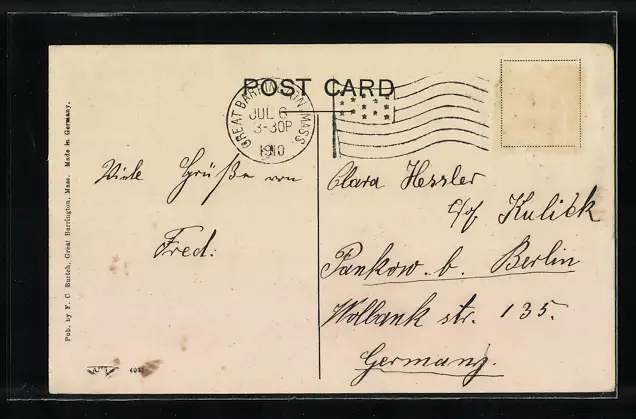 POST CARD
GREAT BARRINGTON, MASS.
JUL 6
3-30P
1910
Viele Grüße von
Fred:
Clara Hessler
c/of Kulick
Pankow. b. Berlin
Wollank str. 135.
Germany.
Pub. by F. C. Burtch, Great Barrington, Mass. Made in Germany.